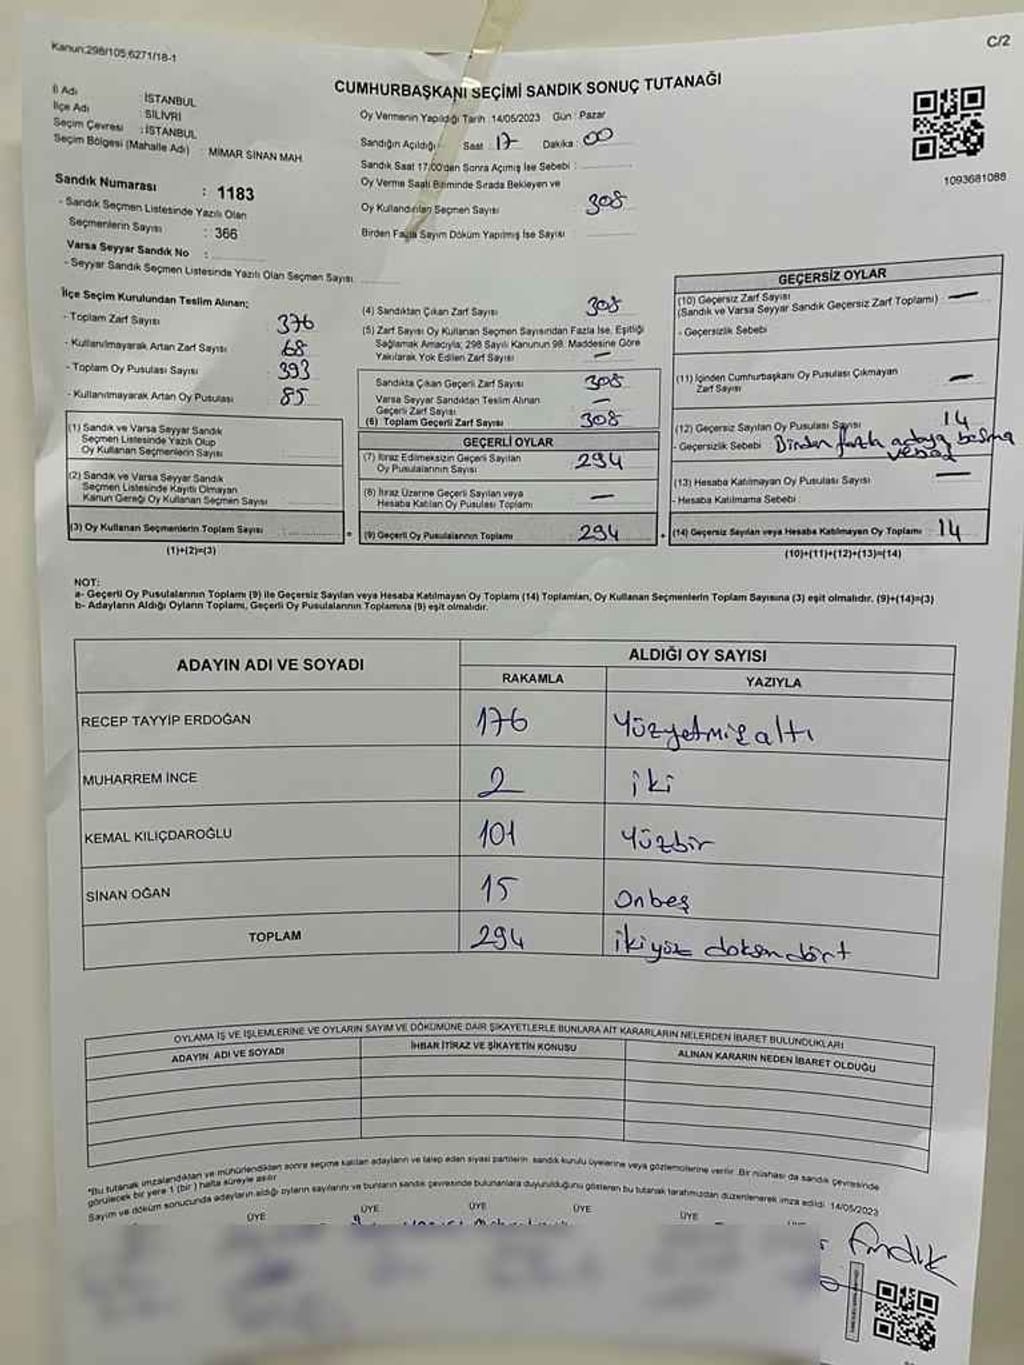 Kanun:298/105,6271/18-1
C/2
CUMHURBAŞKANI SEÇİMİ SANDIK SONUÇ TUTANAĞI
İl Adı : İSTANBUL
İlçe Adı : SİLİVRİ
Seçim Çevresi : İSTANBUL
Seçim Bölgesi (Mahalle Adı) : MİMAR SİNAN MAH.
Oy Vermenin Yapıldığı Tarih : 14/05/2023 Gün : Pazar
Sandığın Açıldığı Saat : 17 Dakika : 00
Sandık Saat 17:00'den Sonra Açımış İse Sebebi :
Oy Verme Saati Bitiminde Sırada Bekleyen ve
Oy Kullandırılan Seçmen Sayısı 308
Birden Fazla Sayım Döküm Yapılmış İse Sayısı
1093681088
Sandık Numarası : 1183
- Sandık Seçmen Listesinde Yazılı Olan
Seçmenlerin Sayısı : 366
Varsa Seyyar Sandık No :
- Seyyar Sandık Seçmen Listesinde Yazılı Olan Seçmen Sayısı
İlçe Seçim Kurulundan Teslim Alınan;
- Toplam Zarf Sayısı 376
- Kullanılmayarak Artan Zarf Sayısı 68
- Toplam Oy Pusulası Sayısı 393
- Kullanılmayarak Artan Oy Pusulası 85
(1) Sandık ve Varsa Seyyar Sandık
Seçmen Listesinde Yazılı Olup
Oy Kullanan Seçmenlerin Sayısı
(2) Sandık ve Varsa Seyyar Sandık
Seçmen Listesinde Kayıtlı Olmayan
Kanun Gereği Oy Kullanan Seçmen Sayısı
(3) Oy Kullanan Seçmenlerin Toplam Sayısı
(1)+(2)=(3)
(4) Sandıktan Çıkan Zarf Sayısı 308
(5) Zarf Sayısı Oy Kullanan Seçmen Sayısından Fazla İse, Eşitliği
Sağlamak Amacıyla; 298 Sayılı Kanunun 98. Maddesine Göre
Yakılarak Yok Edilen Zarf Sayısı —
Sandıkta Çıkan Geçerli Zarf Sayısı 308
Varsa Seyyar Sandıktan Teslim Alınan
Geçerli Zarf Sayısı —
(6) Toplam Geçerli Zarf Sayısı 308
GEÇERLİ OYLAR
(7) İtiraz Edilmeksizin Geçerli Sayılan
Oy Pusulalarının Sayısı 294
(8) İtiraz Üzerine Geçerli Sayılan veya
Hesaba Katılan Oy Pusulası Toplamı —
(9) Geçerli Oy Pusulalarının Toplamı 294
GEÇERSİZ OYLAR
(10) Geçersiz Zarf Sayısı —
(Sandık ve Varsa Seyyar Sandık Geçersiz Zarf Toplamı)
- Geçersizlik Sebebi
(11) İçinden Cumhurbaşkanı Oy Pusulası Çıkmayan
Zarf Sayısı —
(12) Geçersiz Sayılan Oy Pusulası Sayısı 14
- Geçersizlik Sebebi Birden fazla adaya basma
(13) Hesaba Katılmayan Oy Pusulası Sayısı —
- Hesaba Katılmama Sebebi
(14) Geçersiz Sayılan veya Hesaba Katılmayan Oy Toplamı 14
(10)+(11)+(12)+(13)=(14)
NOT:
a- Geçerli Oy Pusulalarının Toplamı (9) ile Geçersiz Sayılan veya Hesaba Katılmayan Oy Toplamı (14) Toplamları, Oy Kullanan Seçmenlerin Toplam Sayısına (3) eşit olmalıdır. (9)+(14)=(3)
b- Adayların Aldığı Oyların Toplamı, Geçerli Oy Pusulalarının Toplamına (9) eşit olmalıdır.
ADAYIN ADI VE SOYADI
ALDIĞI OY SAYISI
RAKAMLA YAZIYLA
RECEP TAYYİP ERDOĞAN 176 Yüzyetmişaltı
MUHARREM İNCE 2 iki
KEMAL KILIÇDAROĞLU 101 Yüzbir
SİNAN OĞAN 15 Onbeş
TOPLAM 294 ikiyüz doksandört
OYLAMA İŞ VE İŞLEMLERİNE VE OYLARIN SAYIM VE DÖKÜMÜNE DAİR ŞİKAYETLERLE BUNLARA AİT KARARLARIN NELERDEN İBARET BULUNDUKLARI
ADAYIN ADI VE SOYADI İHBAR İTİRAZ VE ŞİKAYETİN KONUSU ALINAN KARARIN NEDEN İBARET OLDUĞU
*Bu tutanak imzalandıktan ve mühürlendikten sonra seçime katılan adayların ve talep eden siyasi partilerin sandık kurulu üyelerine veya gözlemcilerine verilir. Bir nüshası da sandık çevresinde
görülecek bir yere 1 (bir) hafta süreyle asılır
Sayım ve döküm sonucunda adayların aldığı oyların sayılarını ve bunların sandık çevresinde bulunanlara duyurulduğunu gösteren bu tutanak tarafımızdan düzenlenerek imza edildi. 14/05/2023
ÜYE ÜYE ÜYE ÜYE ÜYE
Fındık